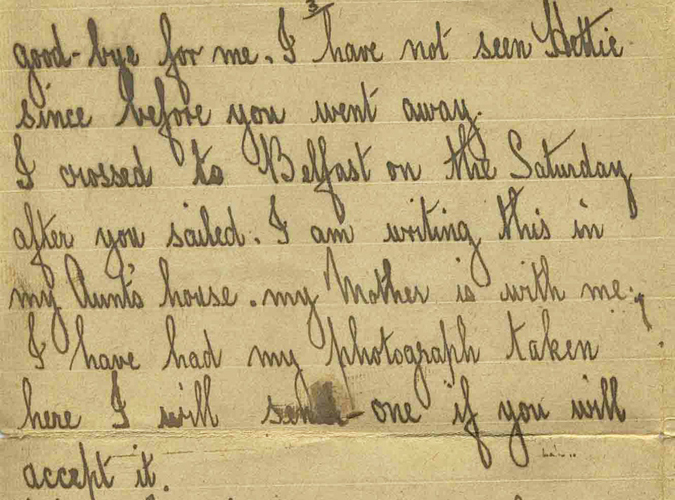 3
good-bye for me. I have not seen Hettie
since before you went away.
I crossed to Belfast on the Saturday
after you sailed. I am writing this in
my Aunt's house. my Mother is with me.
I have had my photograph taken
here I will send one if you will
accept it.